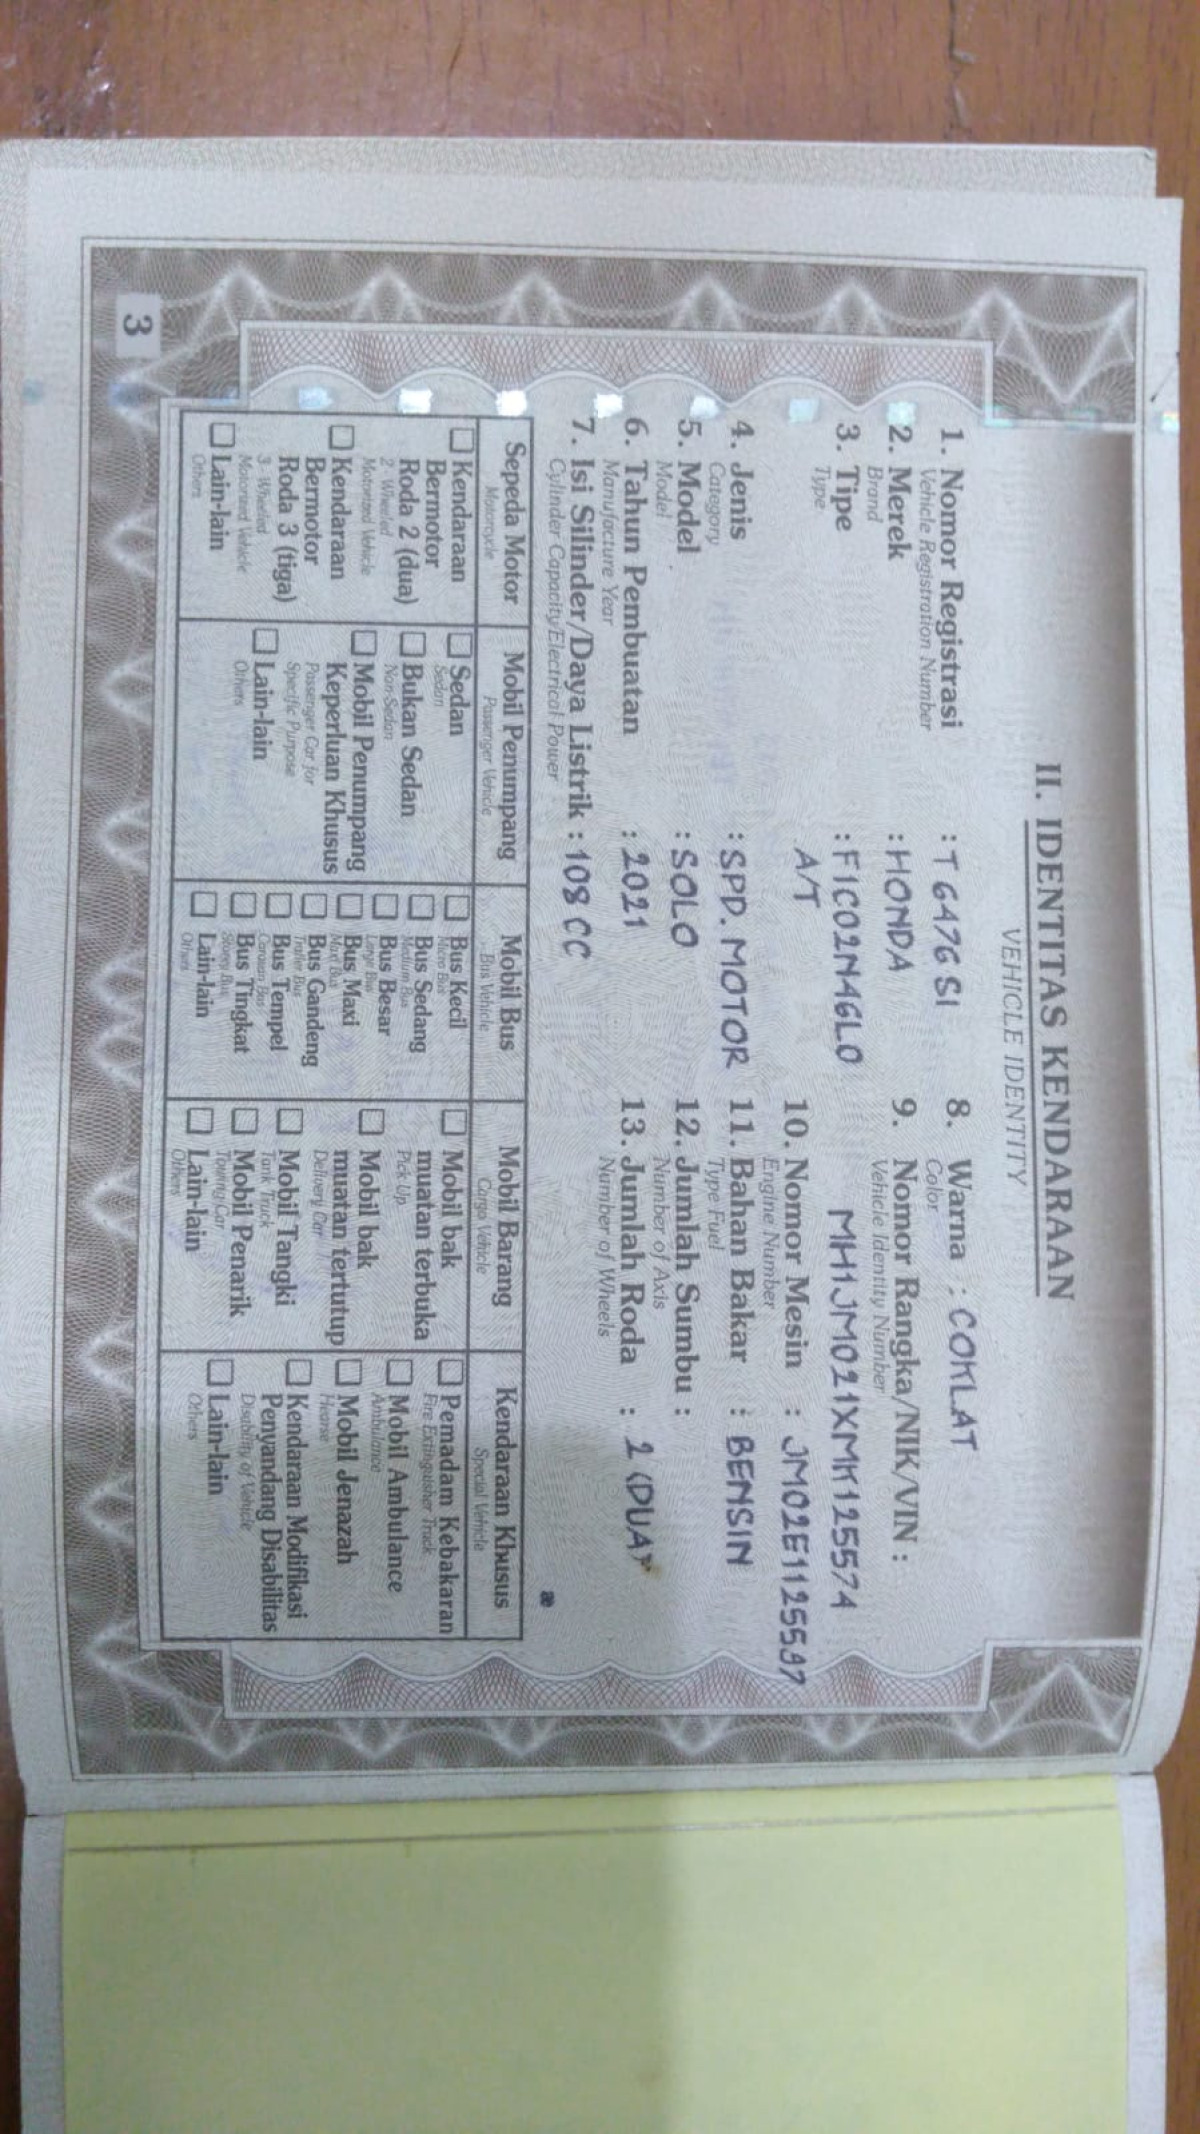 II. IDENTITAS KENDARAAN
VEHICLE IDENTITY
1. Nomor Registrasi : T 6476 SI
Vehicle Registration Number
2. Merek : HONDA
Brand
3. Tipe : F1C02N46L0
Type A/T
4. Jenis : SPD. MOTOR
Category
5. Model : SOLO
Model
6. Tahun Pembuatan : 2021
Manufacture Year
7. Isi Silinder/Daya Listrik : 108 CC
Cylinder Capacity/Electrical Power
8. Warna : COKLAT
Color
9. Nomor Rangka/NIK/VIN :
Vehicle Identity Number
MH1JM021XMK125574
10. Nomor Mesin : JM02E1125597
Engine Number
11. Bahan Bakar : BENSIN
Type Fuel
12. Jumlah Sumbu :
Number of Axis
13. Jumlah Roda : 2 (DUA)
Number of Wheels
æ
Sepeda Motor
Motorcycle
Kendaraan
Bermotor
Roda 2 (dua)
2 Wheeled
Motorized Vehicle
Kendaraan
Bermotor
Roda 3 (tiga)
3 Wheeled
Motorized Vehicle
Lain-lain
Others
Mobil Penumpang
Passenger Vehicle
Sedan
Sedan
Bukan Sedan
Non-Sedan
Mobil Penumpang
Keperluan Khusus
Passenger Car for
Specific Purpose
Lain-lain
Others
Mobil Bus
Bus Vehicle
Bus Kecil
Micro Bus
Bus Sedang
Medium Bus
Bus Besar
Large Bus
Bus Maxi
Maxi Bus
Bus Gandeng
Trailer Bus
Bus Tempel
Caravan Bus
Bus Tingkat
Storey Bus
Lain-lain
Others
Mobil Barang
Cargo Vehicle
Mobil bak
muatan terbuka
Pick Up
Mobil bak
muatan tertutup
Delivery Car
Mobil Tangki
Tank Truck
Mobil Penarik
Towing Car
Lain-lain
Others
Kendaraan Khusus
Special Vehicle
Pemadam Kebakaran
Fire Extinguisher Truck
Mobil Ambulance
Ambulance
Mobil Jenazah
Hearse
Kendaraan Modifikasi
Penyandang Disabilitas
Disability of Vehicle
Lain-lain
Others
3